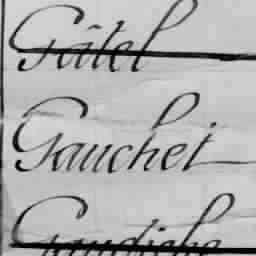 Gâtel
Gauchet